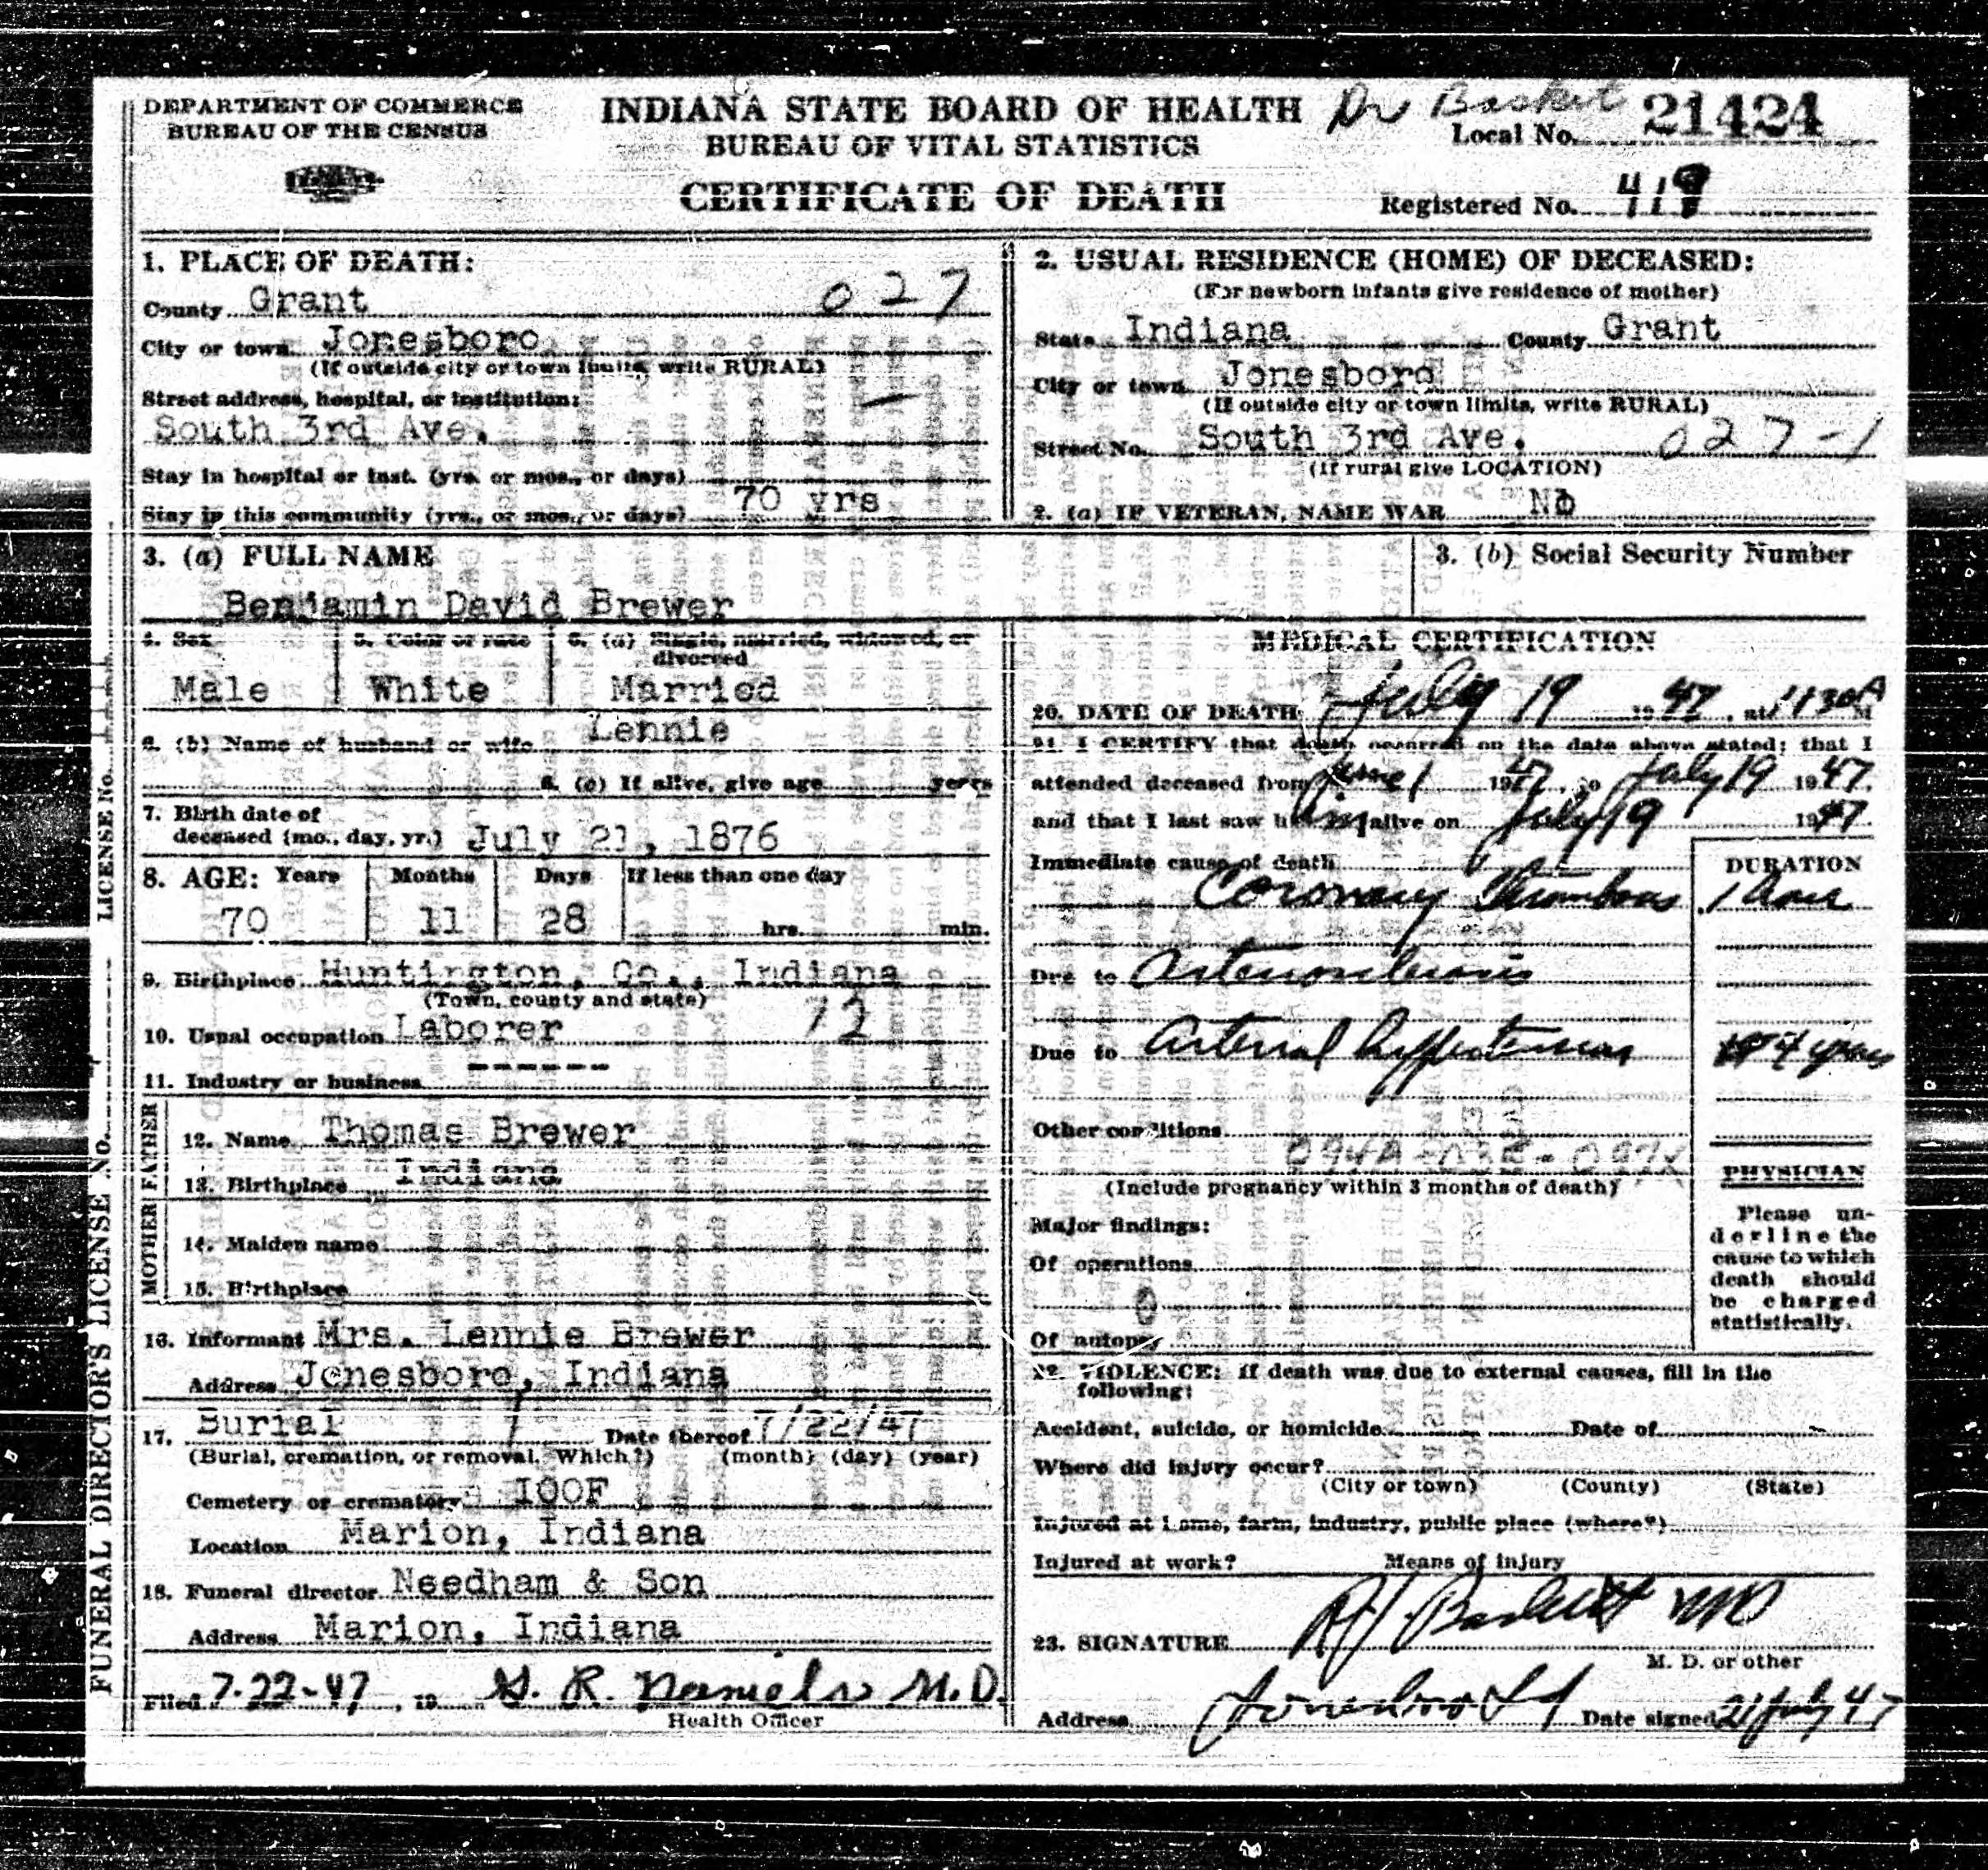 DEPARTMENT OF COMMERCE
BUREAU OF THE CENSUS
INDIANA STATE BOARD OF HEALTH
BUREAU OF VITAL STATISTICS
CERTIFICATE OF DEATH
Dr Basket
Local No. 21424
Registered No. 418
1. PLACE OF DEATH:
County Grant 027
City or town Jonesboro
(If outside city or town limits, write RURAL)
Street address, hospital, or institution:
South 3rd Ave.
Stay in hospital or inst. (yrs. or mos., or days)
Stay in this community (yrs., or mos., or days) 70 yrs
2. USUAL RESIDENCE (HOME) OF DECEASED:
(For newborn infants give residence of mother)
State Indiana County Grant
City or town Jonesboro
(If outside city or town limits, write RURAL)
Street No. South 3rd Ave. 027-1
(If rural give LOCATION)
2. (a) IF VETERAN, NAME WAR No
3. (a) FULL NAME
Benjamin David Brewer
3. (b) Social Security Number
4. Sex
Male
5. Color or race
White
6. (a) Single, married, widowed, or
divorced
Married
6. (b) Name of husband or wife Lennie
6. (c) If alive, give age years
7. Birth date of
deceased (mo., day, yr.) July 21, 1876
8. AGE: Years Months Days If less than one day
70 11 28 hrs. min.
9. Birthplace Huntington, Co., Indiana
(Town, county and state)
10. Usual occupation Laborer 12
11. Industry or business ------
FATHER
12. Name Thomas Brewer
13. Birthplace Indiana
MOTHER
14. Maiden name
15. Birthplace
16. Informant Mrs. Lennie Brewer
Address Jonesboro, Indiana
17. Burial Date thereof 7/22/47
(Burial, cremation, or removal. Which?) (month) (day) (year)
Cemetery or crematory IOOF
Location Marion, Indiana
18. Funeral director Needham & Son
Address Marion, Indiana
Filed 7-22-47, 19 G. R. Daniels M.D.
Health Officer
MEDICAL CERTIFICATION
20. DATE OF DEATH July 19 1947, at 1130 A M
21. I CERTIFY that death occurred on the date above stated; that I
attended deceased from June 1 1947, to July 19 1947.
and that I last saw him alive on July 19 1947
Immediate cause of death
DURATION
Coronary Thrombosis 1 hour
Due to Arteriosclerosis
Due to Arterial hypertension 4 years
Other conditions
(Include pregnancy within 3 months of death)
Major findings:
Of operations
0
Of autopsy
PHYSICIAN
Please un-
derline the
cause to which
death should
be charged
statistically.
22. VIOLENCE: If death was due to external causes, fill in the
following:
Accident, suicide, or homicide Date of
Where did injury occur?
(City or town) (County) (State)
Injured at home, farm, industry, public place (where?)
Injured at work? Means of injury
23. SIGNATURE
M. D. or other
Address Jonesboro Ind Date signed 21 July 47
FUNERAL DIRECTOR'S LICENSE No. LICENSE No.